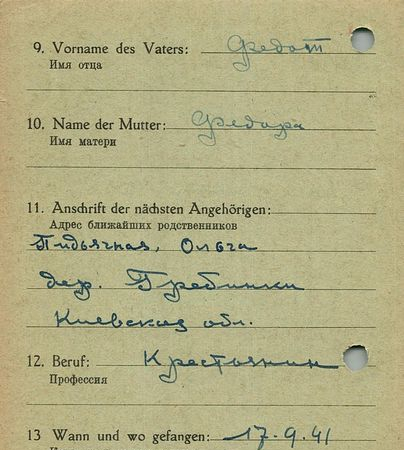 9. Vorname des Vaters: Федот
Имя отца
10. Name der Mutter: Федора
Имя матери
11. Anschrift der nächsten Angehörigen:
Адрес ближайших родственников
Пидъячная, Ольга
дер. Гребинки
Киевская обл.
12. Beruf: Крестьянин
Профессия
13 Wann und wo gefangen: 17.9.41